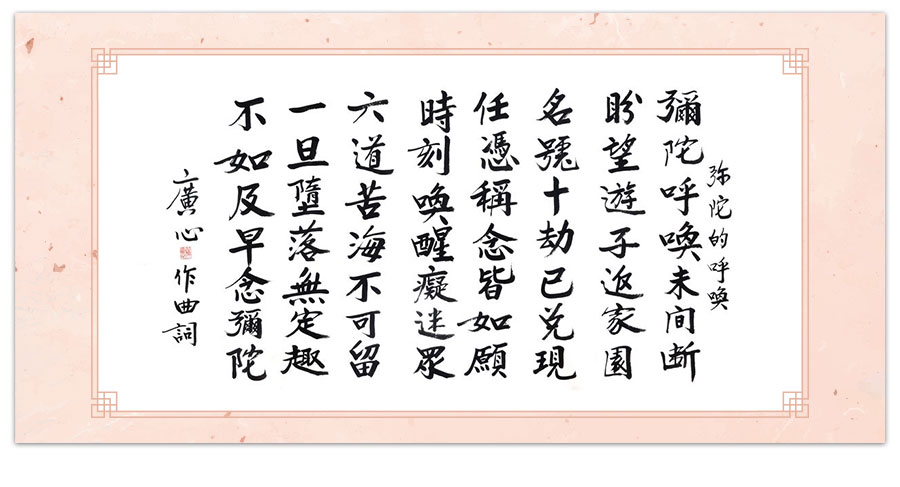 弥陀的呼唤
彌陀呼喚未间断
盼望遊子返家園
名號十劫已兑現
任憑稱念皆如願
時刻喚醒癡迷眾
六道苦海不可留
一旦墮落無定趣
不如及早念彌陀
廣心 作曲詞